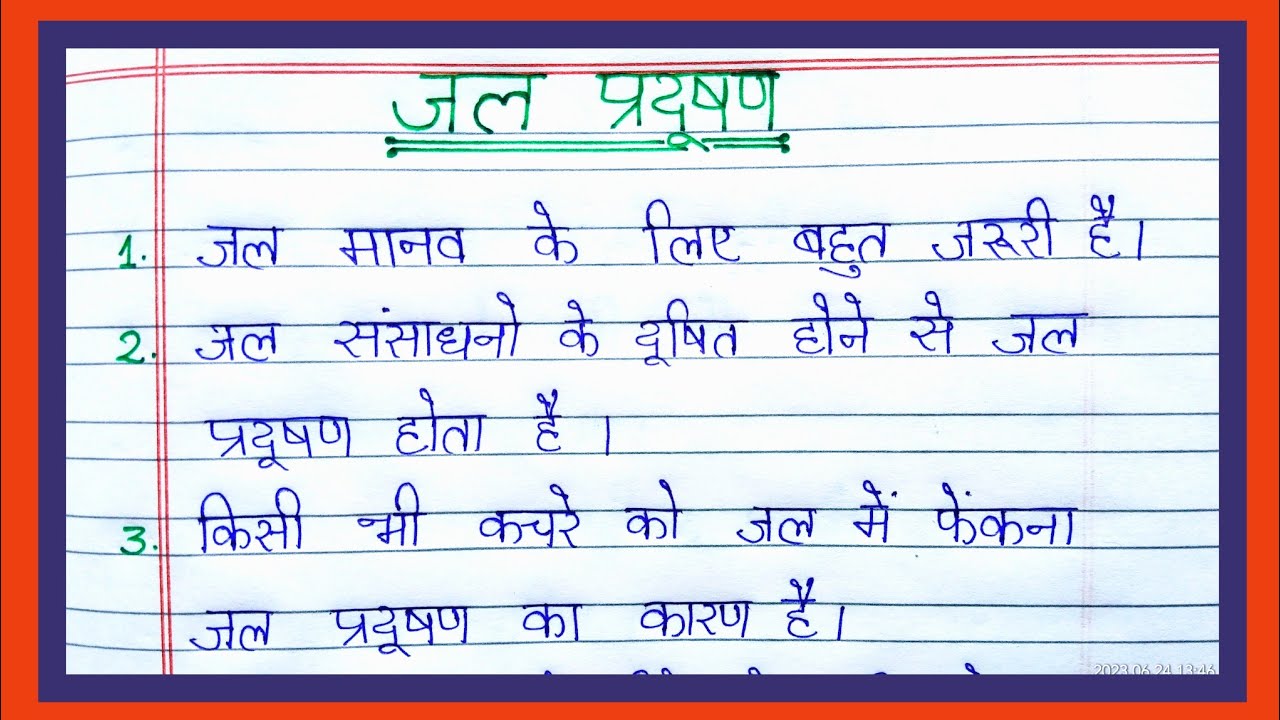 जल प्रदूषण
1. जल मानव के लिए बहुत जरूरी है।
2. जल संसाधनो के दूषित होने से जल
प्रदूषण होता है।
3. किसी भी कचरे को जल में फेंकना
जल प्रदूषण का कारण है।
2023.06.24 13:46